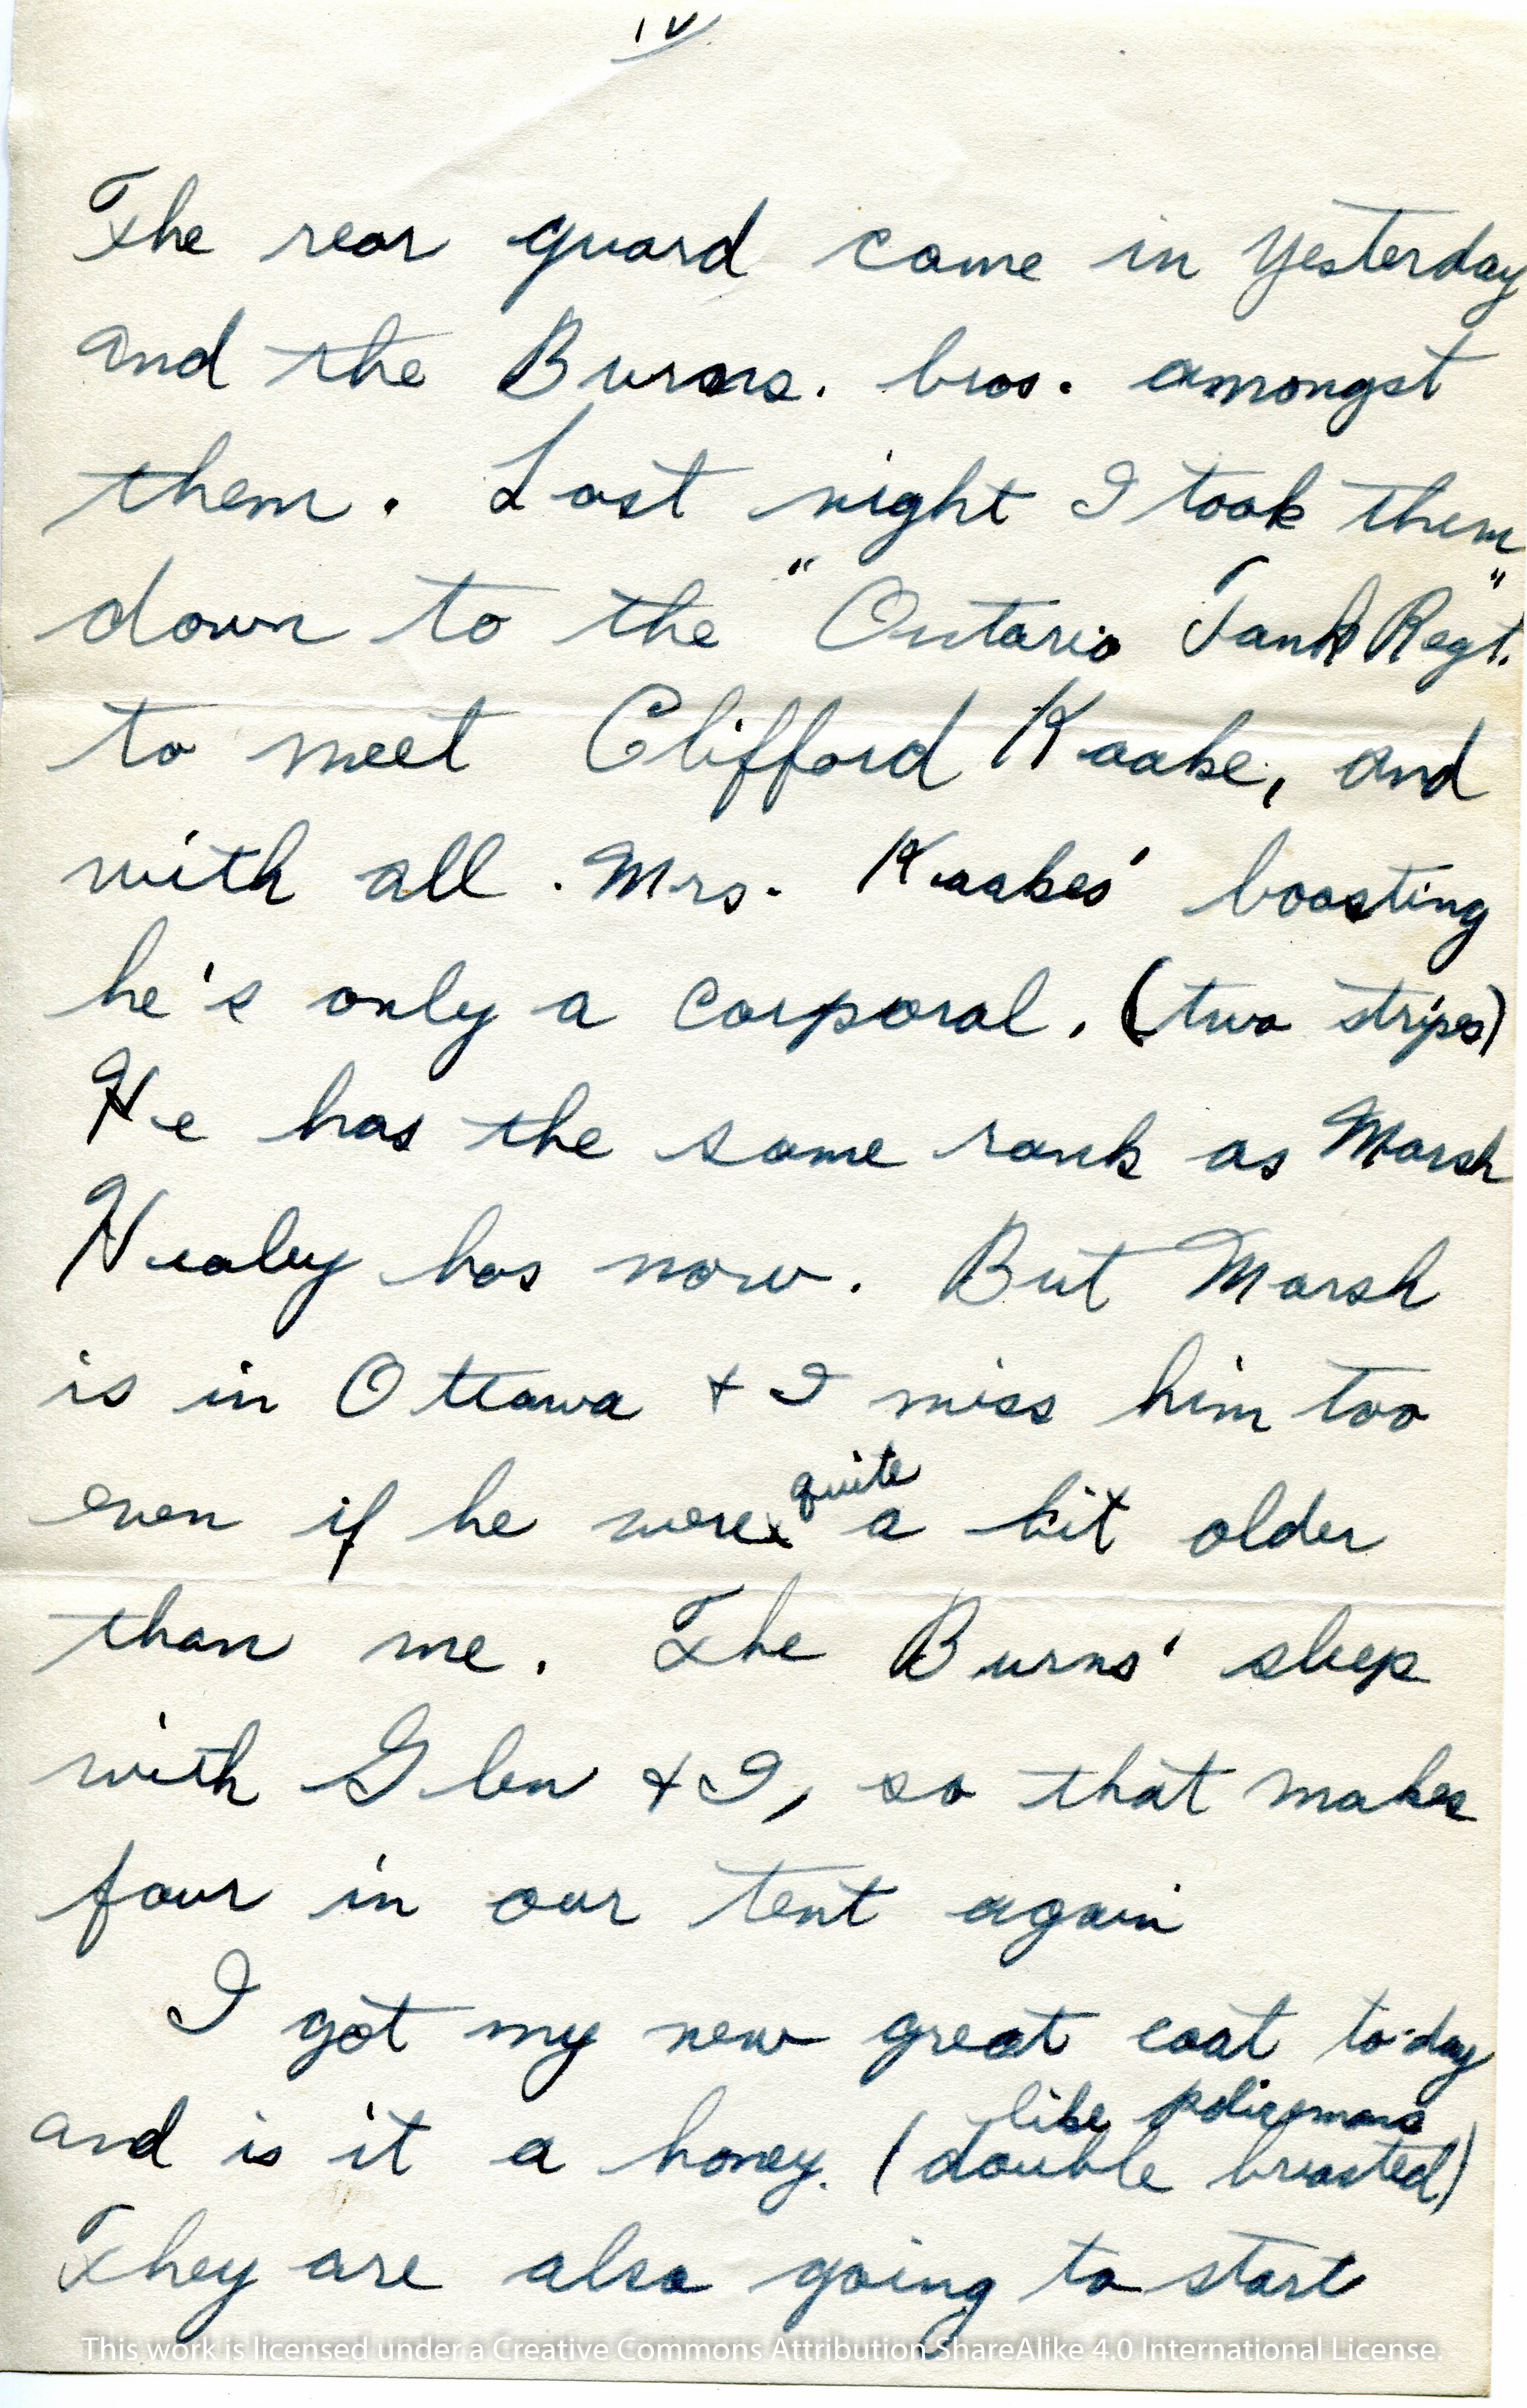 IV
The rear guard came in yesterday
and the Burns. bros. amongst
them. Last night I took them
down to the "Ontario Tank Regt."
to meet Clifford Kaake, and
with all Mrs. Kaakes' boasting
he's only a corporal. (two stripes)
He has the same rank as Marsh
Healey has now. But Marsh
is in Ottawa + I miss him too
even if he were quite a bit older
than me. The Burns' sleep
with Glen + I, so that makes
four in our tent again
I got my new great coat to-day
like policemans
and is it a honey. (double breasted)
They are also going to start
This work is licensed under a Creative Commons Attribution-ShareAlike 4.0 International License.